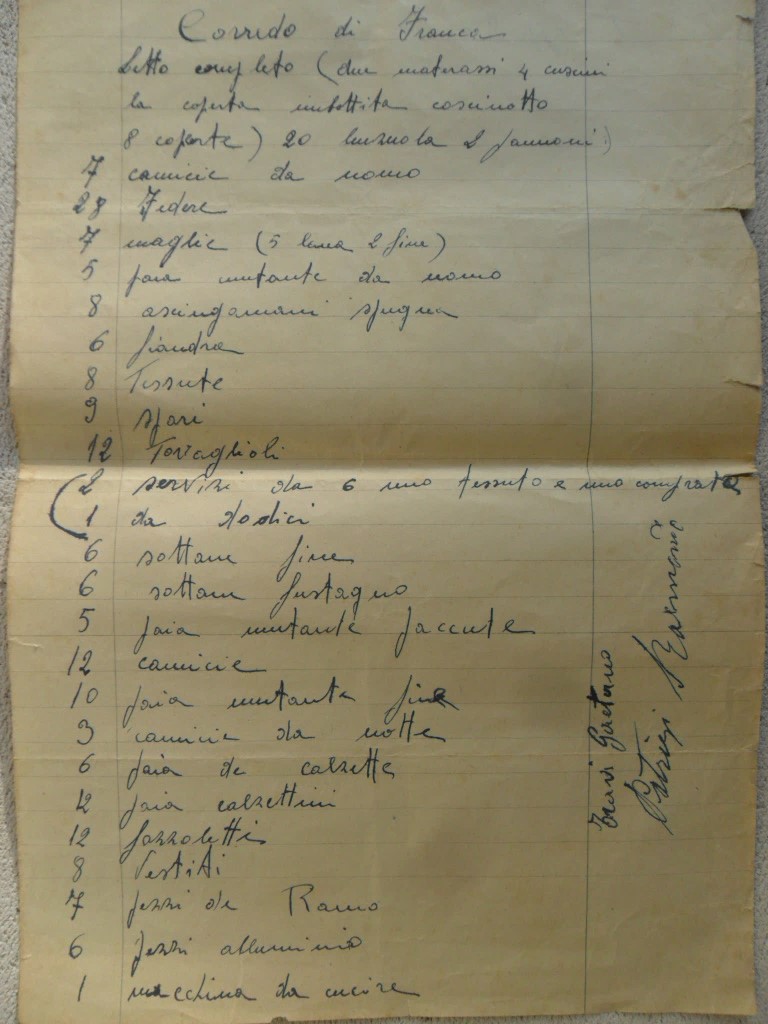 Corredo di Franca
Letto completo (due materassi 4 cuscini
la coperta imbottita coscinotto
8 coperte) 20 lenzuola 2 pannoni)
7 camicie da uomo
28 Federe
7 maglie (5 lana 2 fine)
5 paia mutante da uomo
8 asciugamani spugna
6 fiandra
8 Tessute
9 spari
12 Tovaglioli
2 servizi da 6 uno tessuto e uno comprato
1 da dodici
6 sottane fine
6 sottane fustagno
5 paia mutante faccute
12 camicie
10 paia mutante fine
3 camicie da notte
6 paia de calzette
12 paia calzettini
12 fazzoletti
8 Vestiti
7 pezzi de Rame
6 pezzi alluminio
1 macchina da cucire
Gaetano